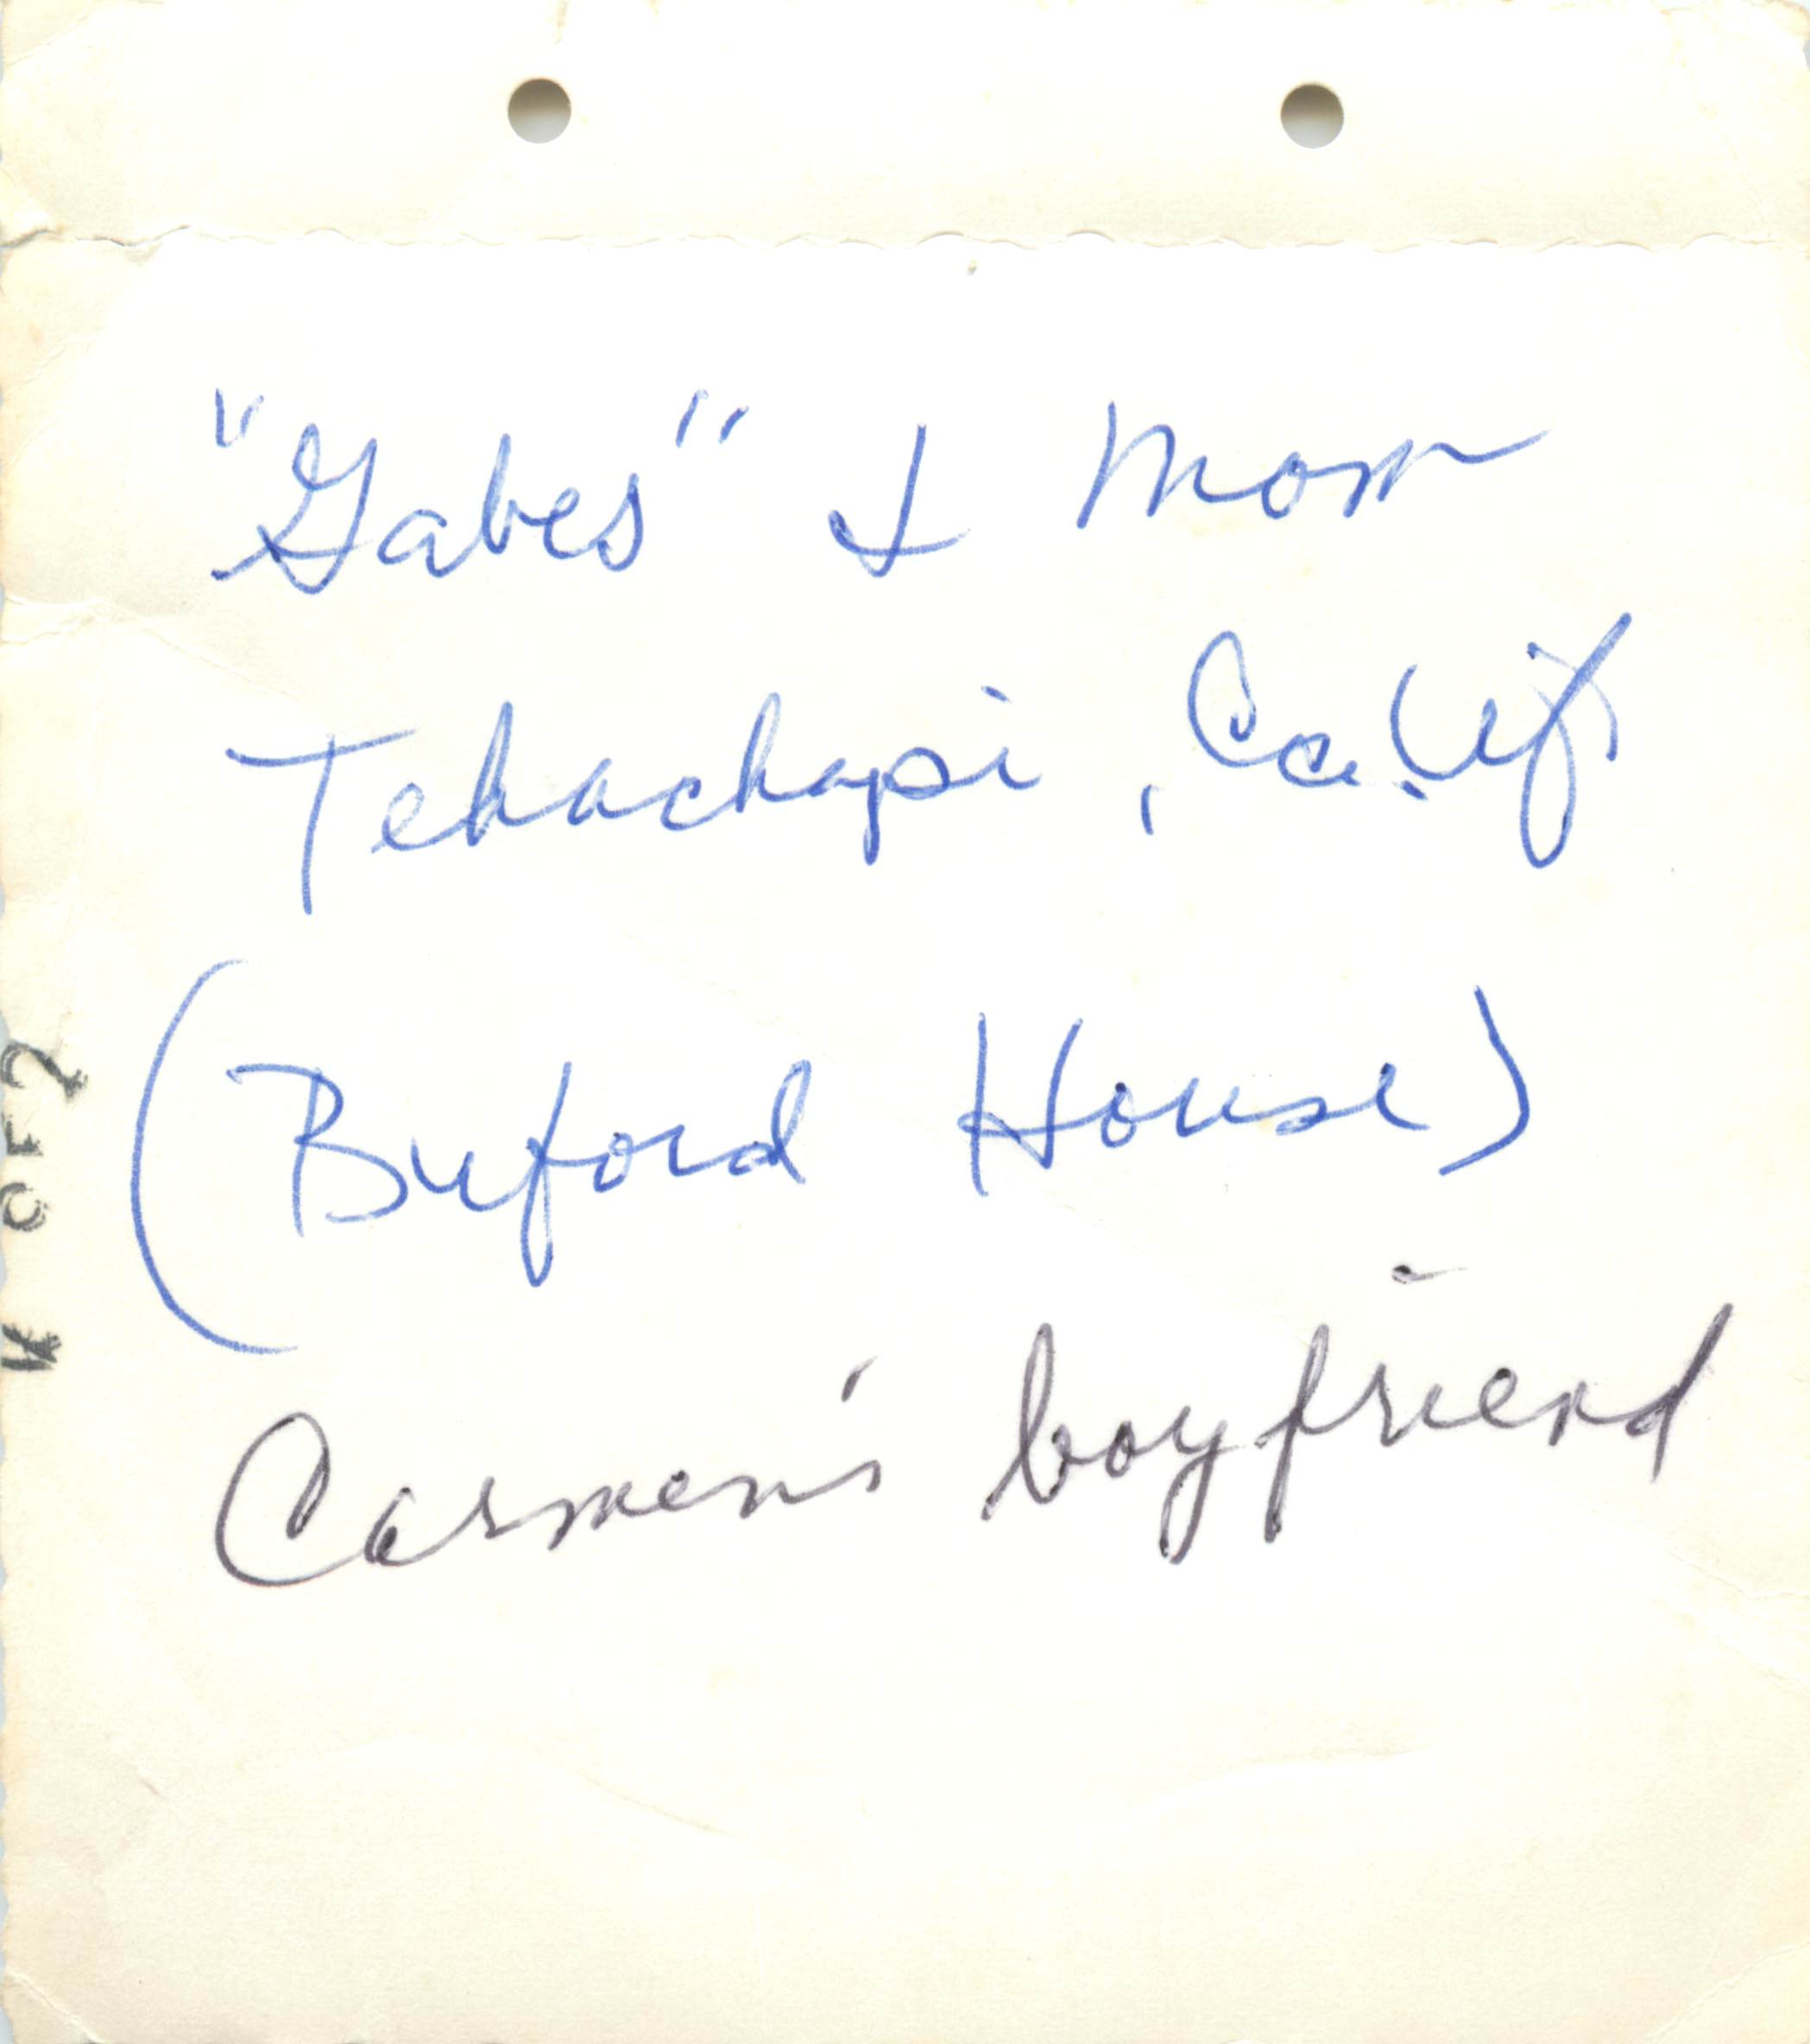 "Gabes" & Mom
Tehachapi, Calif
(Buford House)
Carmen's boyfriend